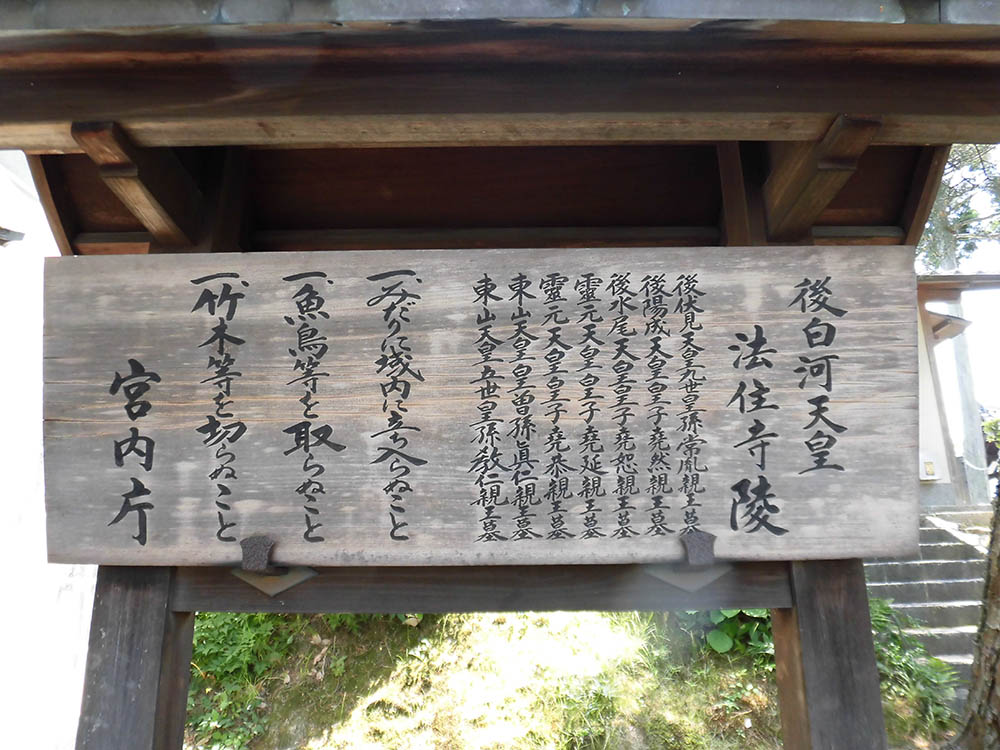 後白河天皇
法住寺陵
後伏見天皇九世皇孫常胤親王墓
後陽成天皇皇子堯然親王墓
後水尾天皇皇子堯恕親王墓
靈元天皇皇子堯延親王墓
靈元天皇皇子堯恭親王墓
東山天皇皇曽孫眞仁親王墓
東山天皇五世皇孫教仁親王墓
一、みだりに域内に立ち入らぬこと
一、魚鳥等を取らぬこと
一、竹木等を切らぬこと
宮内庁